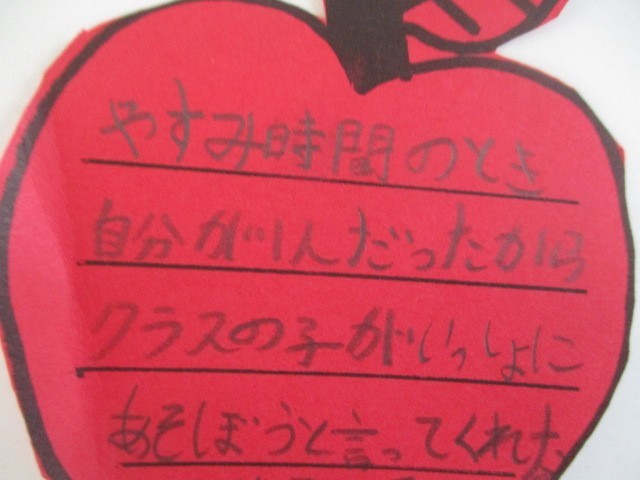 やすみ時間のとき
自分が1人だったから
クラスの子がいっしょに
あそぼうと言ってくれた